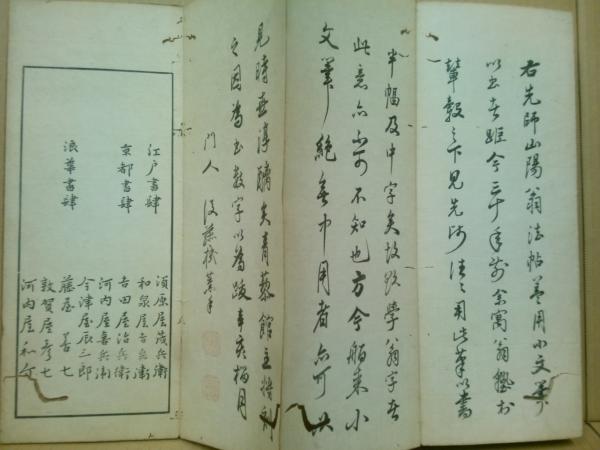 右先師山陽翁法帖蓋用小文筆
以書者距今三十年前余寓翁塾於
輦轂之下見先師往々用此筆以書
半幅及中字矣故欲學翁字者
此意亦不可不知也方今舶来小
文筆絶無中用者亦可以
見時世淳醨矣青藜館主将刻
之因為書数字以為跋辛亥桐月
門人後藤機
江戸書肆
京都書肆
浪華書肆
須原屋茂兵衛
和泉屋吉兵衛
吉田屋治兵衛
河内屋喜兵衛
今津屋辰三郎
藤屋善七
敦賀屋彦七
河内屋和助